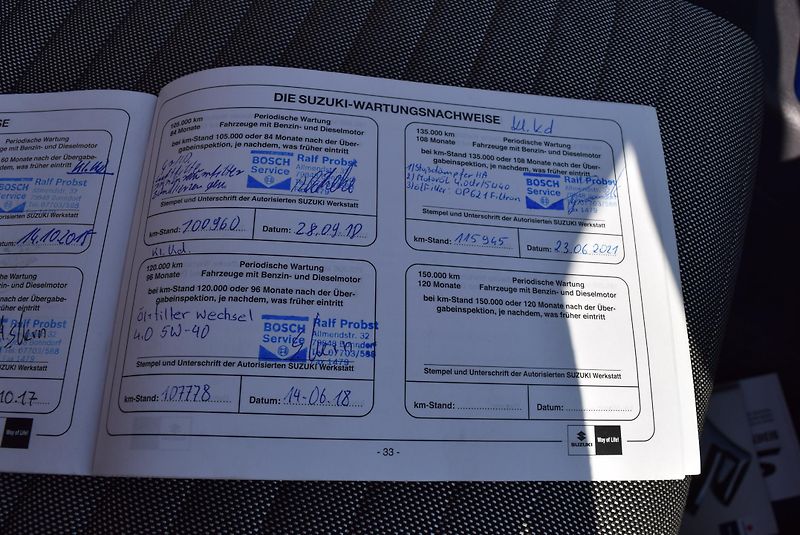 SE
Periodische Wartung
60 Monate nach der Übergabe-
nachdem, was früher eintritt
BOSCH
Service
Ralf Probst
Allmendstr. 32
Autorisierten SUZUKI Werkstatt
Datum: 14.10.2015
Periodische Wartung
Monate nach der Übergabe-
nachdem, was früher eintritt
Ralf Probst
Allmendstr. 32
79848 Bonndorf
Autorisierten SUZUKI Werkstatt
10.17
Way of Life!
DIE SUZUKI-WARTUNGSNACHWEISE
105.000 km
84 Monate
Periodische Wartung
Fahrzeuge mit Benzin- und Dieselmotor
bei km-Stand 105.000 oder 84 Monate nach der Über-
gabeinspektion, je nachdem, was früher eintritt
BOSCH
Service
Ralf Probst
Stempel und Unterschrift der Autorisierten SUZUKI Werkstatt
km-Stand: 100960
Datum: 28.09.18
kl. kd.
120.000 km
96 Monate
Periodische Wartung
Fahrzeuge mit Benzin- und Dieselmotor
bei km-Stand 120.000 oder 96 Monate nach der Über-
gabeinspektion, je nachdem, was früher eintritt
Öl+filter Wechsel
4.0 5W-40
BOSCH
Service
Ralf Probst
Allmendstr. 32
79848 Bonndorf
Tel. 07703/588
Stempel und Unterschrift der Autorisierten SUZUKI Werkstatt
km-Stand: 107778
Datum: 14-06.18
kl. kd
135.000 km
108 Monate
Periodische Wartung
Fahrzeuge mit Benzin- und Dieselmotor
bei km-Stand 135.000 oder 108 Monate nach der Über-
gabeinspektion, je nachdem, was früher eintritt
1) Stoßdämpfer HA
2) Motoröl 4,0
3) ölfilter OP621 Filtron
BOSCH
Service
Ralf Probst
Stempel und Unterschrift der Autorisierten SUZUKI Werkstatt
km-Stand: 115945
Datum: 23.06.2021
150.000 km
120 Monate
Periodische Wartung
Fahrzeuge mit Benzin- und Dieselmotor
bei km-Stand 150.000 oder 120 Monate nach der Über-
gabeinspektion, je nachdem, was früher eintritt
Stempel und Unterschrift der Autorisierten SUZUKI Werkstatt
km-Stand:
Datum:
SUZUKI
Way of Life!
- 33 -